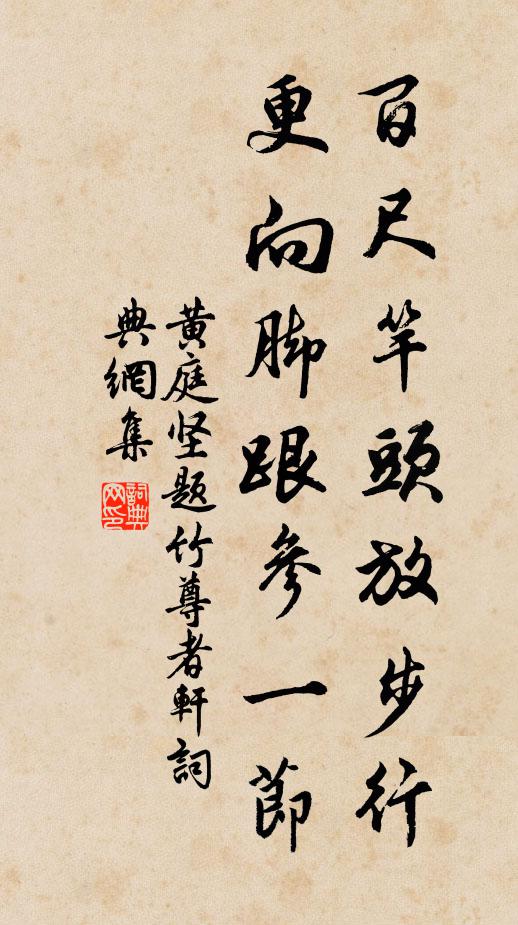 百尺竿頭放步行
更向脚跟參一節
黄庭坚題竹尊者軒詞
典網集
詞典网印